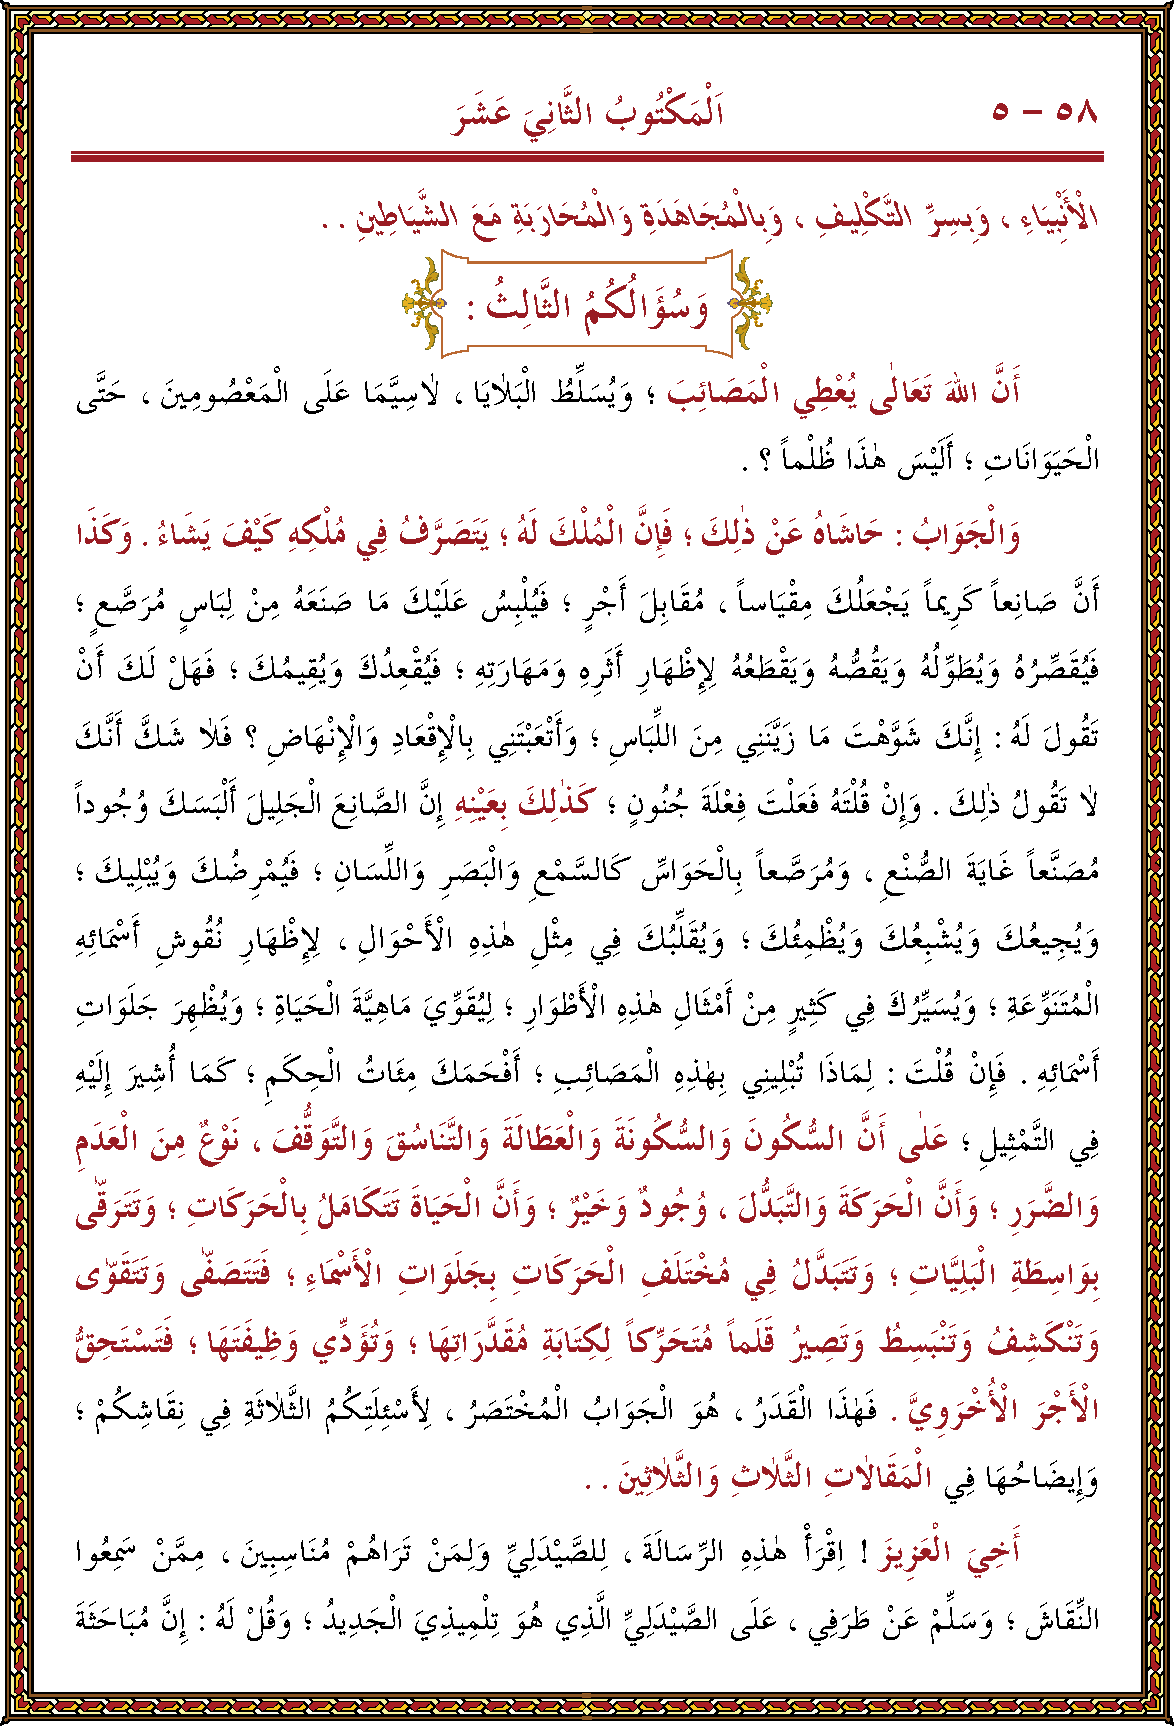 ٥٨ – ٥ اَلْمَكْتُوبُ الثَّانِيَ عَشَرَ
الْأَنْبِيَاءِ ، وَبِسِرِّ التَّكْلِيفِ ، وَبِالْمُجَاهَدَةِ وَالْمُحَارَبَةِ مَعَ الشَّيَاطِينِ . .
وَسُؤَالُكُمُ الثَّالِثُ :
أَنَّ اللهَ تَعَالٰى يُعْطِي الْمَصَائِبَ ؛ وَيُسَلِّطُ الْبَلَايَا ، لَاسِيَّمَا عَلَى الْمَعْصُومِينَ ، حَتَّى
الْحَيَوَانَاتِ ؛ أَلَيْسَ هٰذَا ظُلْماً ؟ .
وَالْجَوَابُ : حَاشَاهُ عَنْ ذٰلِكَ ؛ فَإِنَّ الْمُلْكَ لَهُ ؛ يَتَصَرَّفُ فِي مُلْكِهِ كَيْفَ يَشَاءُ . وَكَذَا
أَنَّ صَانِعاً كَرِيماً يَجْعَلُكَ مِقْيَاساً ، مُقَابِلَ أَجْرٍ ؛ فَيُلْبِسُ عَلَيْكَ مَا صَنَعَهُ مِنْ لِبَاسٍ مُرَصَّعٍ ؛
فَيُقَصِّرُهُ وَيُطَوِّلُهُ وَيَقُصُّهُ وَيَقْطَعُهُ لِإِظْهَارِ أَثَرِهِ وَمَهَارَتِهِ ؛ فَيُقْعِدُكَ وَيُقِيمُكَ ؛ فَهَلْ لَكَ أَنْ
تَقُولَ لَهُ : إِنَّكَ شَوَّهْتَ مَا زَيَّنَنِي مِنَ اللِّبَاسِ ؛ وَأَتْعَبْتَنِي بِالْإِقْعَادِ وَالْإِنْهَاضِ ؟ فَلَا شَكَّ أَنَّكَ
لَا تَقُولُ ذٰلِكَ . وَإِنْ قُلْتَهُ فَعَلْتَ فِعْلَةَ جُنُونٍ ؛ كَذٰلِكَ بِعَيْنِهِ إِنَّ الصَّانِعَ الْجَلِيلَ أَلْبَسَكَ وُجُوداً
مُصَنَّعاً غَايَةَ الصُّنْعِ ، وَمُرَصَّعاً بِالْحَوَاسِّ كَالسَّمْعِ وَالْبَصَرِ وَاللِّسَانِ ؛ فَيُمْرِضُكَ وَيُبْلِيكَ ؛
وَيُجِيعُكَ وَيُشْبِعُكَ وَيُظْمِئُكَ ؛ وَيُقَلِّبُكَ فِي مِثْلِ هٰذِهِ الْأَحْوَالِ ، لِإِظْهَارِ نُقُوشِ أَسْمَائِهِ
الْمُتَنَوِّعَةِ ؛ وَيُسَيِّرُكَ فِي كَثِيرٍ مِنْ أَمْثَالِ هٰذِهِ الْأَطْوَارِ ؛ لِيُقَوِّيَ مَاهِيَّةَ الْحَيَاةِ ؛ وَيُظْهِرَ جَلَوَاتِ
أَسْمَائِهِ . فَإِنْ قُلْتَ : لِمَاذَا تُبْلِينِي بِهٰذِهِ الْمَصَائِبِ ؛ أَفْحَمَكَ مِئَاتُ الْحِكَمِ ؛ كَمَا أُشِيرَ إِلَيْهِ
فِي التَّمْثِيلِ ؛ عَلٰى أَنَّ السُّكُونَ وَالسُّكُونَةَ وَالْعَطَالَةَ وَالتَّنَاسُقَ وَالتَّوَقُّفَ ، نَوْعٌ مِنَ الْعَدَمِ
وَالضَّرَرِ ؛ وَأَنَّ الْحَرَكَةَ وَالتَّبَدُّلَ ، وُجُودٌ وَخَيْرٌ ؛ وَأَنَّ الْحَيَاةَ تَتَكَامَلُ بِالْحَرَكَاتِ ؛ وَتَتَرَقّٰى
بِوَاسِطَةِ الْبَلِيَّاتِ ؛ وَتَتَبَدَّلُ فِي مُخْتَلَفِ الْحَرَكَاتِ بِجَلَوَاتِ الْأَسْمَاءِ ؛ فَتَتَصَفّٰى وَتَتَقَوّٰى
وَتَنْكَشِفُ وَتَنْبَسِطُ وَتَصِيرُ قَلَماً مُتَحَرِّكاً لِكِتَابَةِ مُقَدَّرَاتِهَا ؛ وَتُؤَدِّي وَظِيفَتَهَا ؛ فَتَسْتَحِقُّ
الْأَجْرَ الْأُخْرَوِيَّ . فَهٰذَا الْقَدَرُ ، هُوَ الْجَوَابُ الْمُخْتَصَرُ ، لِأَسْئِلَتِكُمُ الثَّلَاثَةِ فِي نِقَاشِكُمْ ؛
وَإِيضَاحُهَا فِي الْمَقَالَاتِ الثَّلَاثِ وَالثَّلَاثِينَ . .
أَخِيَ الْعَزِيزَ ! اِقْرَأْ هٰذِهِ الرِّسَالَةَ ، لِلصَّيْدَلِيِّ وَلِمَنْ تَرَاهُمْ مُنَاسِبِينَ ، مِمَّنْ سَمِعُوا
النِّقَاشَ ؛ وَسَلِّمْ عَنْ طَرَفِي ، عَلَى الصَّيْدَلِيِّ الَّذِي هُوَ تِلْمِيذِيَ الْجَدِيدُ ؛ وَقُلْ لَهُ : إِنَّ مُبَاحَثَةَ